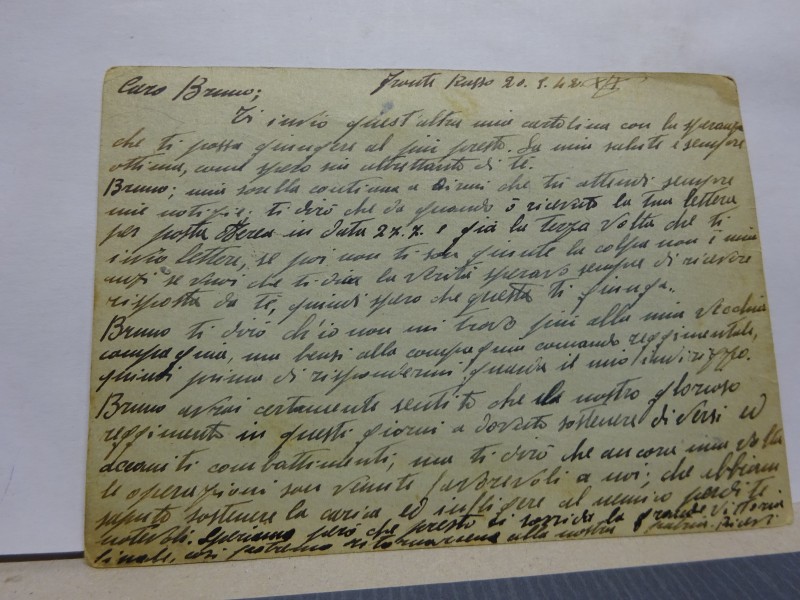 Caro Bruno; Fronte Russo 20.8.42 XX
Ti invio quest'altra mia cartolina con la speranza
che ti possa giungere al più presto. La mia salute è sempre
ottima, come spero sia altrettanto di te.
Bruno; mia sorella continua a dirmi che tu attendi sempre
mie notizie; ti dirò che da quando ò ricevuto la tua lettera
per posta aerea in data 27.7. è già la terza volta che ti
invio lettere, se poi non ti son giunte la colpa non è mia
anzi se vuoi che ti dica la verità speravo sempre di ricevere
risposta da te, quindi spero che questa ti giunga.
Bruno ti dirò ch'io non mi trovo più alla mia vecchia
compagnia, ma bensì alla compagnia comando reggimentale,
quindi prima di rispondermi guarda il mio indirizzo.
Bruno avrai certamente sentito che il nostro glorioso
reggimento in questi giorni a dovuto sostenere diversi ed
accaniti combattimenti, ma ti dirò che ancora una volta
le operazioni son venute favorevoli a noi; che abbiamo
saputo sostenere la carica ed infligere al nemico perdite
notevoli. Speriamo però che presto ci sorrida la grande vittoria
finale, così potremo ritornarcene alla nostra patria. Ricevi